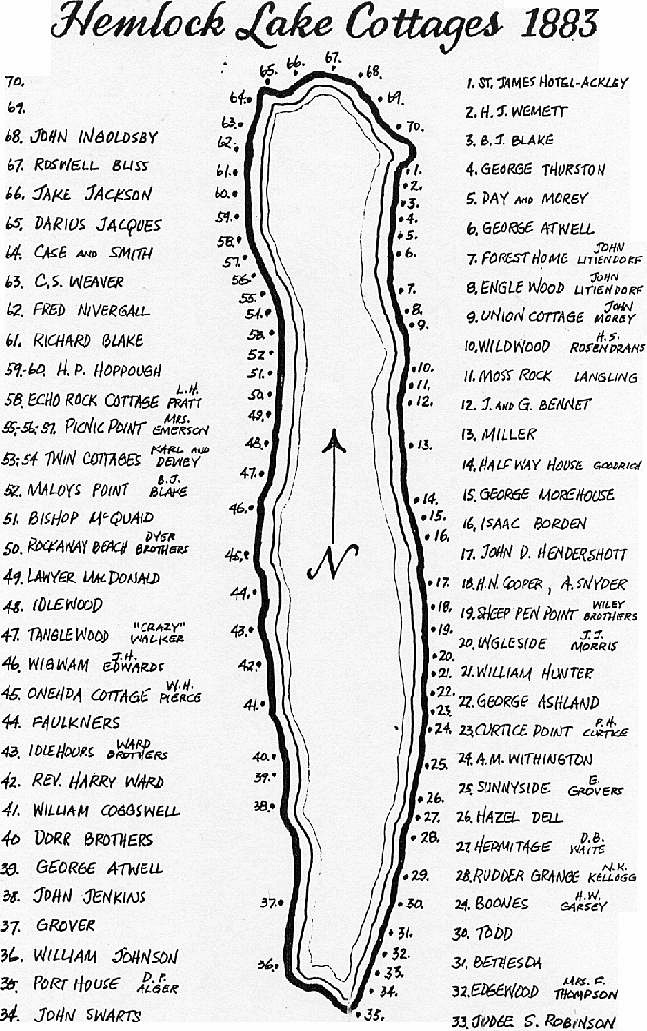 Hemlock Lake Cottages 1883
70.
69.
68. JOHN INGOLDSBY
67. ROSWELL BLISS
66. JAKE JACKSON
65. DARIUS JACQUES
64. CASE AND SMITH
63. C.S. WEAVER
62. FRED NIVERGALL
61. RICHARD BLAKE
59.-60. H.P. HOPPOUGH
58. ECHO ROCK COTTAGE L.H. PRATT
55-56-57. PICNIC POINT MRS. EMERSON
53-54 TWIN COTTAGES KARL AND DEWEY
52. MALOYS POINT B.J. BLAKE
51. BISHOP McQUAID
50. ROCKAWAY BEACH DYER BROTHERS
49. LAWYER MACDONALD
48. IDLEWOOD
47. TANGLEWOOD "CRAZY" WALKER
46. WIGWAM J.H. EDWARDS
45. ONEHDA COTTAGE W.H. PIERCE
44. FAULKNERS
43. IDLEHOURS WARD BROTHERS
42. REV. HARRY WARD
41. WILLIAM COGGSWELL
40 DORR BROTHERS
39. GEORGE ATWELL
38. JOHN JENKINS
37. GROVER
36. WILLIAM JOHNSON
35. PORT HOUSE D.P. ALGER
34. JOHN SWARTS
65.
66.
67.
68.
64.
69.
63.
70.
62.
61.
1.
60.
2.
59.
3.
4.
58.
5.
57.
6.
56.
7.
55.
54.
8.
53.
9.
52.
51.
10.
50.
11.
49.
12.
48.
13.
47.
46.
14.
15.
16.
45.
N
44.
17.
18.
43.
19.
42.
20.
21.
41.
22.
23.
24.
40.
25.
39.
38.
26.
27.
28.
37.
29.
30.
36.
31.
32.
33.
34.
35.
1. ST. JAMES HOTEL-ACKLEY
2. H.J. WEMETT
3. B.J. BLAKE
4. GEORGE THURSTON
5. DAY AND MOREY
6. GEORGE ATWELL
7. FOREST HOME JOHN LITIENDORF
8. ENGLEWOOD JOHN LITIENDORF
9. UNION COTTAGE JOHN MOREY
10. WILDWOOD H.S. ROSENCRANS
11. MOSS ROCK LANGLING
12. J. AND G. BENNET
13. MILLER
14. HALF WAY HOUSE GOODRICH
15. GEORGE MOREHOUSE
16. ISAAC BORDEN
17. JOHN D. HENDERSHOTT
18. H.N. COOPER, A. SNYDER
19. SHEEP PEN POINT WILEY BROTHERS
20. INGLESIDE J.J. MORRIS
21. WILLIAM HUNTER
22. GEORGE ASHLAND
23. CURTICE POINT P.H. CURTICE
24. A.M. WITHINGTON
25. SUNNYSIDE E. GROVERS
26. HAZEL DELL
27. HERMITAGE D.B. WAITE
28. RUDDER GRANGE N.K. KELLOGG
29. BOONES H.W. GARSEY
30. TODD
31. BETHESDA
32. EDGEWOOD MRS. F. THOMPSON
33. JUDGE S. ROBINSON